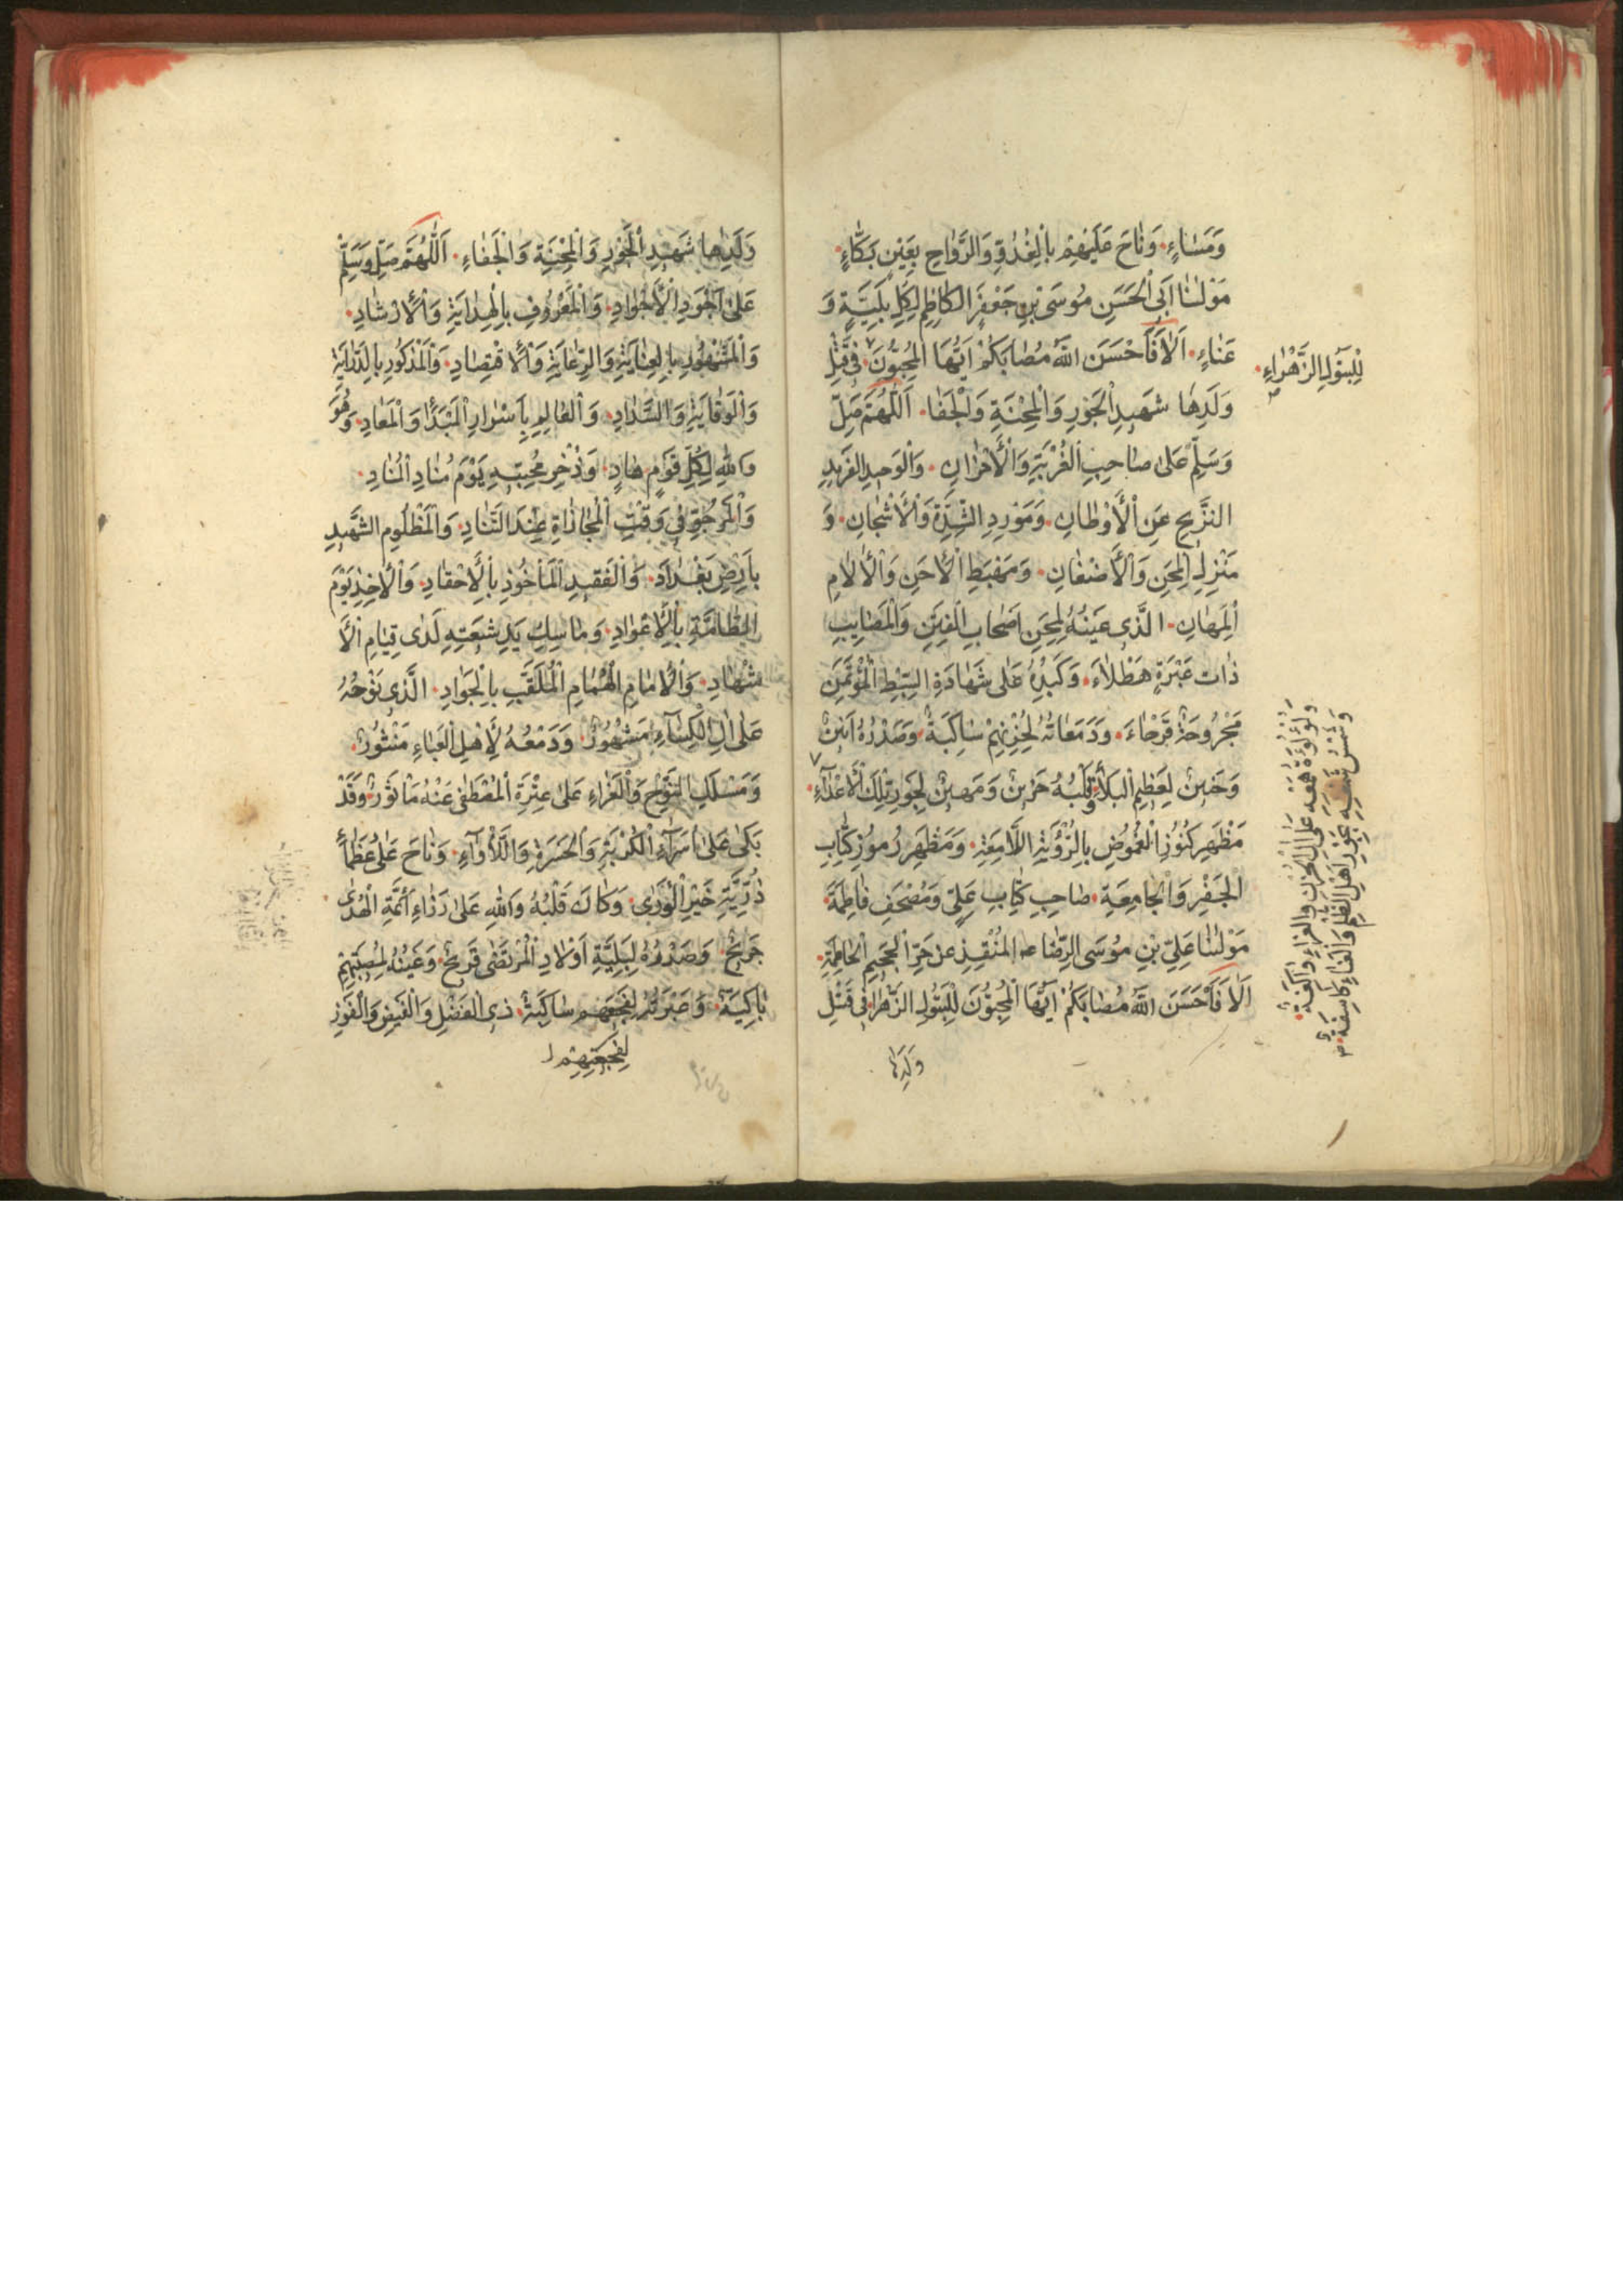 وَمَسٰاءٍ، وَنٰاحَ عَلَيْهِمْ بِالْغُدْوَةِ وَالرَّوٰاحِ بِعَيْنٍ بَكّٰاءٍ،
مَوْلٰنٰا اَبِى الْحَسَنِ مُوسَى بْنِ جَعْفَرَ الكٰاظِمِ لِكُلِّ بَلِيَّةٍ وَ
عَنٰاءٍ، اَلاٰ فَاَحْسَنَ اللّٰهُ مُصٰابَكُمْ اَيُّهَا الْمُحِبُّونَ، فِى قَتْلِ
لِلْبَتُولِ الزَّهْرٰاءِ،
وَلَدِهٰا شَهِيدِ الْجَوْرِ وَالْمِحْنَةِ وَالْجَفٰا، اَللّٰهُمَّ صَلِّ
وَسَلِّمْ عَلىٰ صٰاحِبِ الْغُرْبَةِ وَالْأَحْزٰانِ، وَالْوَحِيدِ الفَرِيدِ
النَّزِيحِ عَنِ الْأَوْطٰانِ، وَمَوْرِدِ الشِّدَّةِ وَالْأَشْجٰانِ، وَ
مَنْزِلِ الْمِحَنِ وَالْأَضْغٰانِ، وَمَهْبَطِ الْأِحَنِ وَالْأٰلاٰمِ
الْمِهٰانِ، الَّذِى عَيْنُهُ لِمِحَنِ اَصْحٰابِ الْفِتَنِ وَالْمَصٰايِبِ
ذٰات عَبْرَةٍ هَطْلاٰءَ، وَكَبِدُهُ عَلىٰ شَهٰادَةِ السِّبْطِ الْمُؤْتَمَنِ
مَجْرُوحَةٌ قَرْحٰاءَ، وَدَمَعٰاتُهُ لِحُزْنِهِمْ سٰاكِبَةٌ، وَصَدْرُهُ
وَحَنِينٌ لِعَظِيمِ الْبَلاٰءِ، وَقَلْبُهُ حَزِينٌ وَمَهِينٌ لِجَوْرِ تِلْكَ الْأَعْدٰآءِ،
مَظْهَرِ كُنُوزِ الْغُمُوضِ بِالرُّؤْيَةِ اللّٰامِعَةِ، وَمَظْهَرِ رُمُوزِ كِتٰابِ
الْجَفْرِ وَالْجٰامِعَةِ، صٰاحِبِ كِتٰابِ عَلِيٍّ وَمُصْحَفِ فٰاطِمَةَ،
مَوْلٰنٰا عَلِيِّ بْنِ مُوسَى الرِّضٰا عه المُنْقِذِ عن حَرِّ الْجَحِيمِ الْحٰاطِمَةِ،
اَلاٰ فَاَحْسَنَ اللّٰهُ مُصٰابَكُمْ اَيُّهَا الْمُحِبُّونَ لِلْبَتُولِ الزَّهْرٰا فِى قَتْلِ
وَلَدِهٰا
وَلَدِهٰا شَهِيدِ الْجَوْرِ وَالْمِحْنَةِ وَالْجَفٰاءِ، اَللّٰهُمَّ صَلِّ وَسَلِّمْ
عَلىٰ اَجْوَدِ الْأَجْوٰادِ، وَالْمَعْرُوفِ بِالْهِدٰايَةِ وَالْأِرْشٰادِ،
وَالْمَشْهُورِ بِالْعِنٰايَةِ وَالرِّعٰايَةِ وَالْأِقْتِصٰادِ، وَالْمَذْكُورِ بِالدِّرٰايَةِ
وَالْوِقٰايَةِ وَالسَّدٰادِ، وَالْعٰالِمِ بِاَسْرٰارِ الْمَبْدَأِ وَالْمَعٰادِ، وَهُوَ
وَاللّٰهِ لِكُلِّ قَوْمٍ هٰادٍ، وَذُخْرِ مُحِبّيهِ يَوْمَ مُنٰادِ الْمُنٰادِ،
وَالْمَرْجُوِّ فِى وَقْتِ الْمُجٰازٰاةِ عِنْدَ التَّنٰادِ، وَالْمَظْلُومِ الشَّهِيدِ
بِاَرْضِ بَغْدٰادَ، وَالْفَقِيدِ الْمَأْخُوذِ بِالْأَحْقٰادِ، وَالْأٰخِذِ يَوْمَ
الطّٰامَّةِ بِالْأَعْوٰادِ، وَمٰاسِكِ يَدِ شِيعَتِهِ لَدٰى قِيٰامِ الْأَ
شْهٰادِ، وَالْأِمٰامِ الْهُمٰامِ الْمُلَقَّبِ بِالْجَوٰادِ، الَّذِى نَوْحُهُ
عَلىٰ اٰلِ الْكِسٰاءِ مَشْهُورٌ، وَدَمْعُهُ لِأَهْلِ الْعَبٰاءِ مَنْثُورٌ،
وَمَسْلَكِ النَّوْحِ وَالْعَزٰاءِ عَلىٰ عِتْرَةِ الْمُصْطَفىٰ عَنْهُ مَأثُورٌ، وَقَدْ
بَكىٰ عَلىٰ اُسَرٰآءِ الْكُرْبَةِ وَالْحَسْرَةِ وَاللَّأْوٰآءِ، وَنٰاحَ عَلىٰ عُظَمٰاءِ
ذُرِّيَّةِ خَيْرِ الْوَرٰى، وَكٰانَ قَلْبُهُ وَاللّٰهِ عَلىٰ رَزٰاءِ اَئِمَّةِ الْهُدٰى
جَرِيحٌ، وَصَدْرُهُ لِبَلِيَّةِ اَوْلاٰدِ الْمُرْتَضٰى قَرِيحٌ، وَعَيْنُهُ لِمُصِيبَتِهِمْ
بٰاكِيَةٌ، وَعَبْرَتُهُ سٰاكِبَةٌ، ذِى الْفَضْلِ وَالْفَيْضِ وَالْفَوْزِ
لِفَجِيعَتِهِمْ